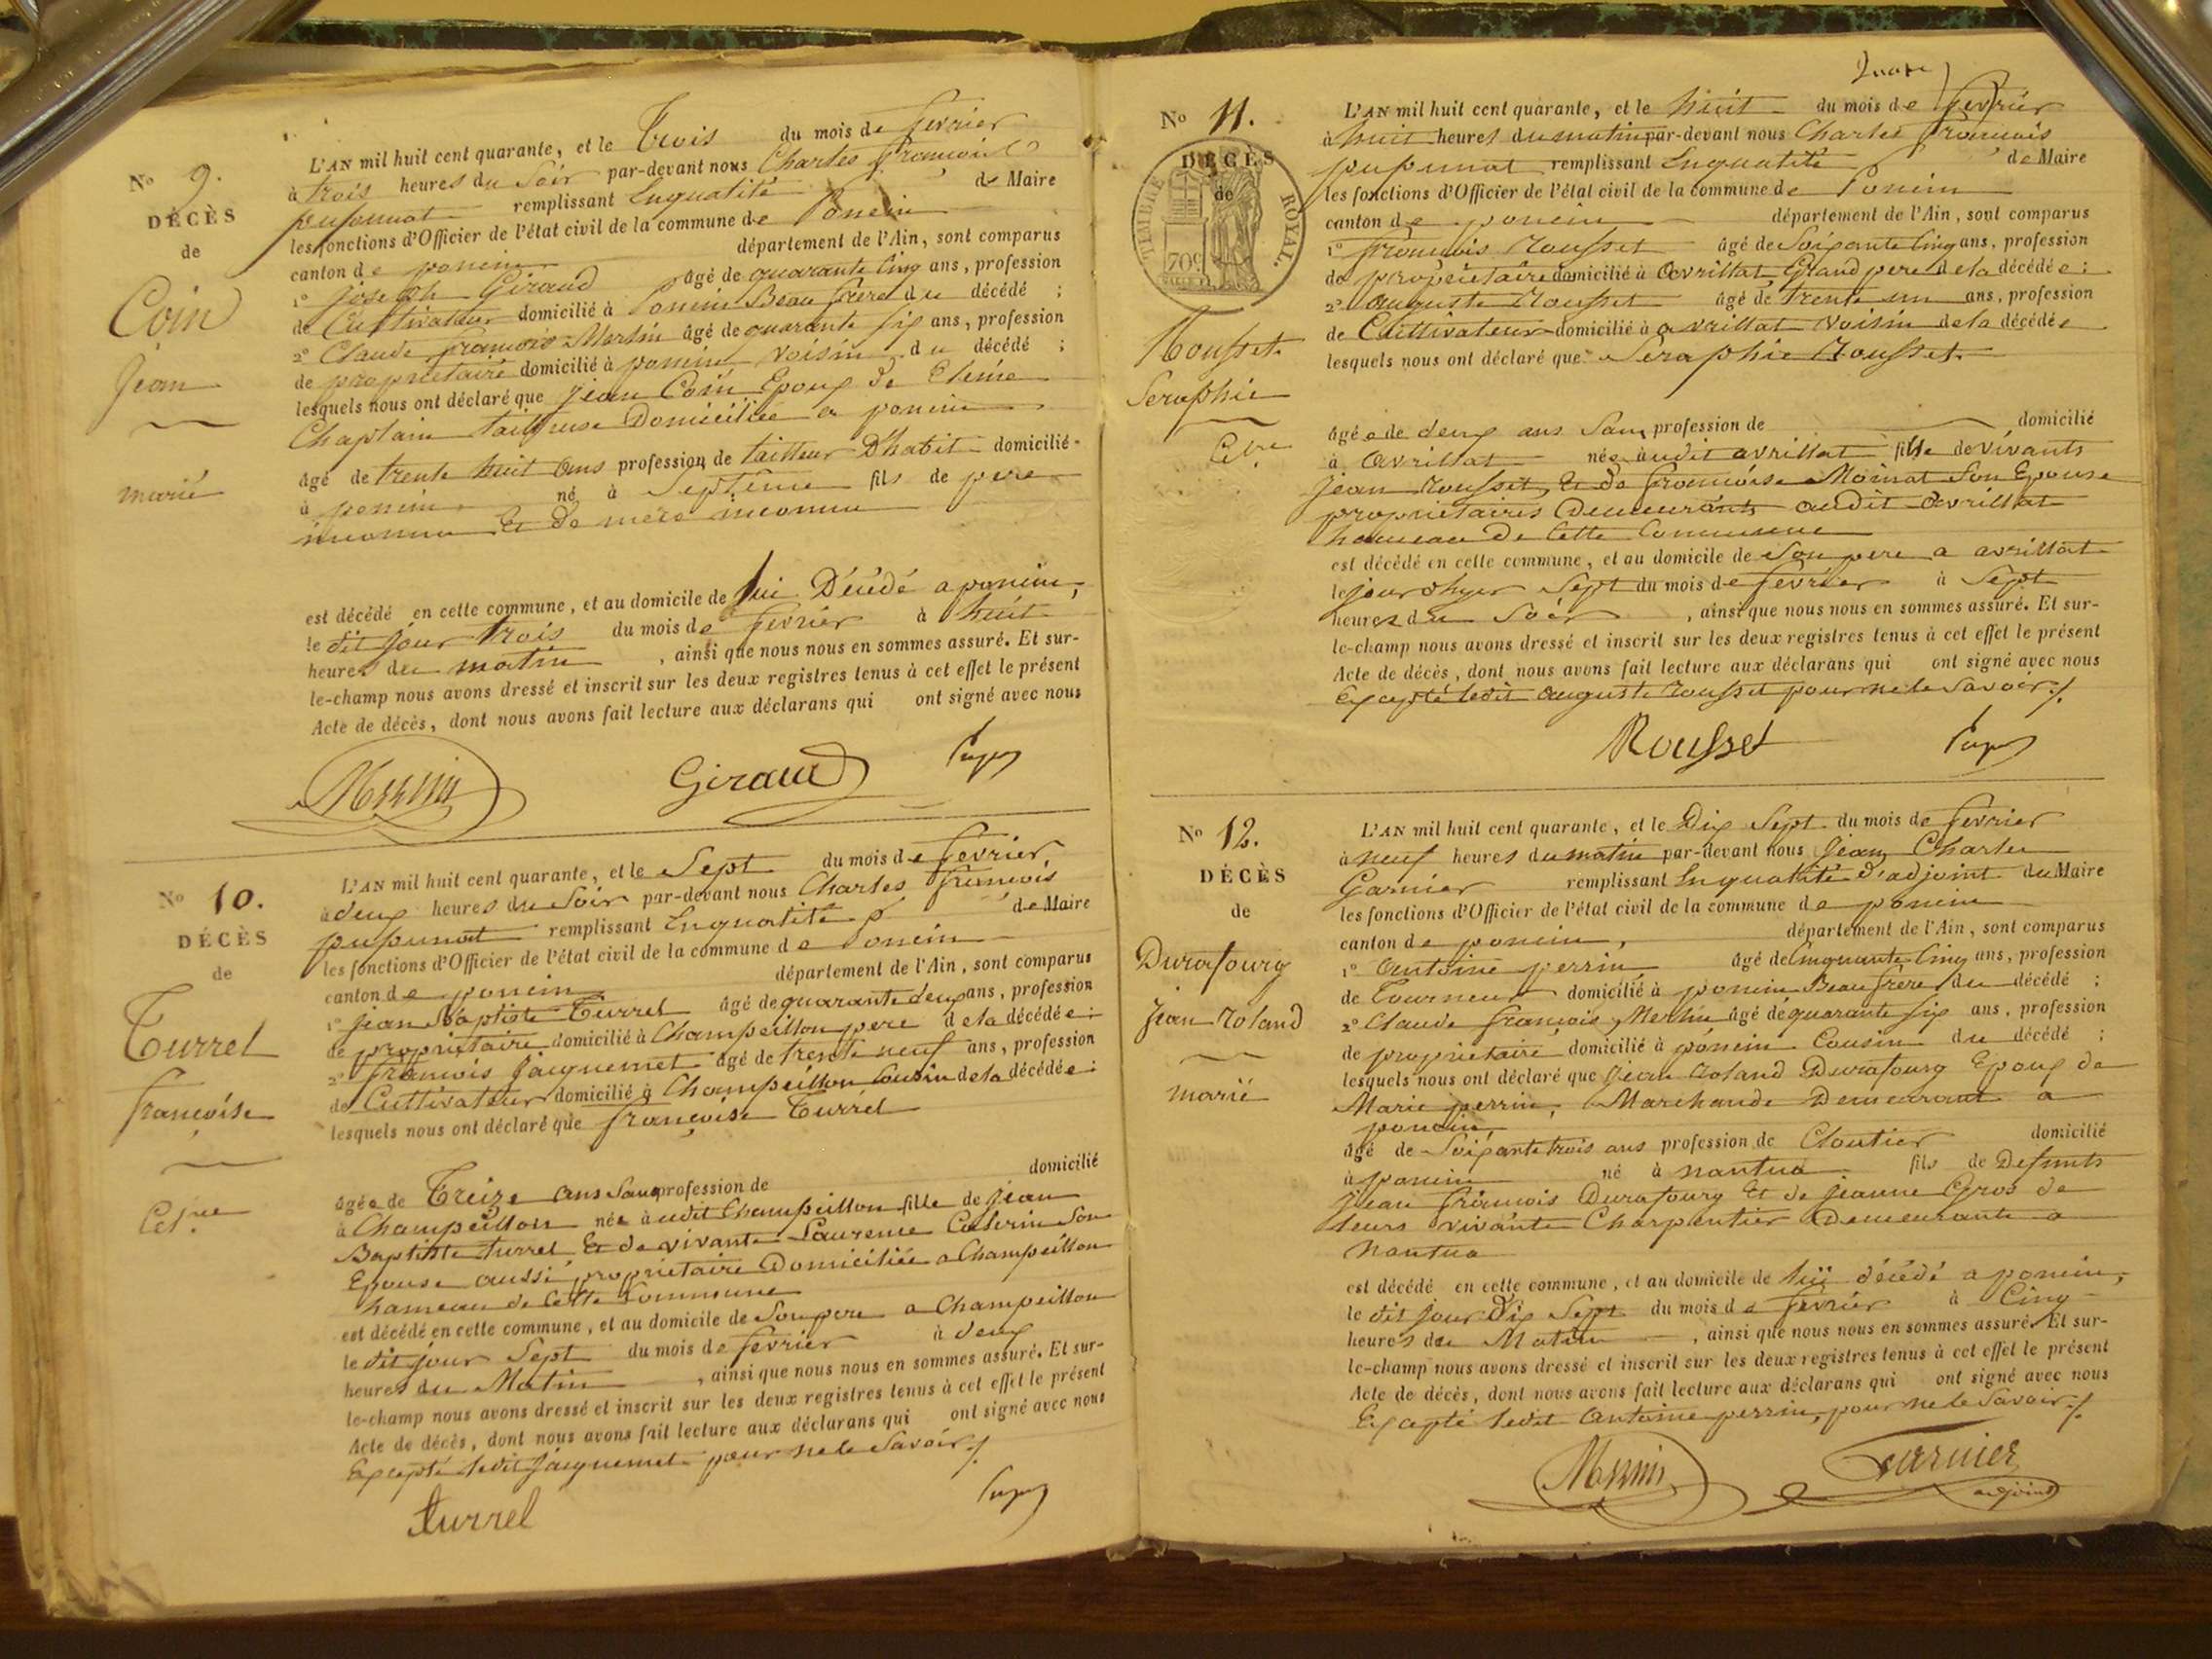 No 9.
DÉCÈS
de
Coin
Jean
marié
L'AN mil huit cent quarante, et le trois du mois de fevrier
à trois heures du Soir par-devant nous Charles françois
pupunat remplissant Enqualité de Maire
les fonctions d'Officier de l'état civil de la commune de Poncin
canton de poncin département de l'Ain, sont comparus
1° joseph Giraud âgé de quarante cinq ans, profession
de Cultivateur domicilié à Poncin Beau frere du décédé ;
2° Claude françois Merlin âgé de quarante six ans, profession
de proprietaire domicilié à poncin voisin du décédé ;
lesquels nous ont déclaré que jean Coin Epoux de
Chaplain tailleuse Domiciliée a poncin
âgé de trente huit ans profession de tailleur D'habit domicilié
à poncin né à Septeme fils de pere
inconnu Et de mere inconnue
est décédé en cette commune, et au domicile de lui Décédé a poncin,
le dit jour trois du mois de fevrier à huit
heures du matin , ainsi que nous nous en sommes assuré. Et sur-
le-champ nous avons dressé et inscrit sur les deux registres tenus à cet effet le présent
Acte de décès, dont nous avons fait lecture aux déclarans qui ont signé avec nous
Merlin Giraud Pup
No 10.
DÉCÈS
de
Turrel
françoise
Cel.re
L'AN mil huit cent quarante, et le Sept du mois de fevrier,
à deux heures du Soir par-devant nous Charles francois
pupunat remplissant Enqualité de Maire
les fonctions d'Officier de l'état civil de la commune de Poncin
canton de poncin département de l'Ain, sont comparus
1° jean Baptiste Turrel âgé de quarante deux ans, profession
de proprietaire domicilié à Champeillon pere de la décédée ;
2° françois jaquemet âgé de trente neuf ans, profession
de Cultivateur domicilié à Champeillon Cousin de la décédée ;
lesquels nous ont déclaré que françoise Turrel
âgée de Treize ans Sans profession de domicilié
à Champeillon née audit Champeillon fille de jean
Baptiste turrel Et de vivante Laurence Caterin Son
Epouse aussi proprietaire Domiciliée a Champeillon
hameau de Cette Commune
est décédé en cette commune, et au domicile de Son pere a Champeillon
le dit jour Sept du mois de fevrier à deux
heures du Matin , ainsi que nous nous en sommes assuré. Et sur-
le-champ nous avons dressé et inscrit sur les deux registres tenus à cet effet le présent
Acte de décès, dont nous avons fait lecture aux déclarans qui ont signé avec nous
Excepté ledit jaquemet pour ne le Savoir ./.
turrel Pup
No 11.
DÉCÈS
de
TIMBRE ROYAL.
70c
Rousset
Seraphie
Cel.re
L'AN mil huit cent quarante, et le huit du mois de fevrier
à huit heures du matin par-devant nous Charles françois
pupunat remplissant Enqualité de Maire
les fonctions d'Officier de l'état civil de la commune de Poncin
canton de poncin département de l'Ain, sont comparus
1° françois Rousset âgé de Soixante Cinq ans, profession
de proprietaire domicilié à Avrillat Grand pere de la décédée ;
2° auguste Rousset âgé de trente un ans, profession
de Cultivateur domicilié à avrillat voisin de la décédée
lesquels nous ont déclaré que Seraphie Rousset
âgée de deux ans Sans profession de domicilié
à Avrillat née audit avrillat fille de vivants
jean rousset, Et de francoise Moinat Son Epouse
proprietaires Demeurants audit avrillat
hameau de Cette Commune
est décédé en cette commune, et au domicile de Son pere a avrillat
le jour dhyer Sept du mois de fevrier à Sept
heures du Soir , ainsi que nous nous en sommes assuré. Et sur-
le-champ nous avons dressé et inscrit sur les deux registres tenus à cet effet le présent
Acte de décès, dont nous avons fait lecture aux déclarans qui ont signé avec nous
Excepté ledit auguste rousset pour ne le Savoir ./.
Rousset Pup
No 12.
DÉCÈS
de
Durafourg
jean Roland
marié
L'AN mil huit cent quarante, et le Dix Sept du mois de fevrier
à neuf heures du matin par-devant nous jean Charles
Garnier remplissant Enqualité d'adjoint du Maire
les fonctions d'Officier de l'état civil de la commune de poncin
canton de poncin, département de l'Ain, sont comparus
1° Antoine perrin âgé de Cinquante Cinq ans, profession
de Tourneur domicilié à poncin Beau frère du décédé ;
2° Claude françois Merlin âgé de quarante six ans, profession
de proprietaire domicilié à poncin Cousin du décédé ;
lesquels nous ont déclaré que jean roland Durafourg Epoux de
Marie perrin, Marchande Demeurant a
poncin,
âgé de Soixante trois ans profession de Cloutier domicilié
à poncin né à nantua fils de Defunts
jean françois Durafourg Et de jeanne Gros de
leurs vivante Charpentier Demeurants a
nantua
est décédé en cette commune, et au domicile de lui décédé a poncin,
le dit jour Dix Sept du mois de fevrier à Cinq
heures du Matin , ainsi que nous nous en sommes assuré. Et sur-
le-champ nous avons dressé et inscrit sur les deux registres tenus à cet effet le présent
Acte de décès, dont nous avons fait lecture aux déclarans qui ont signé avec nous
Excepté ledit Antoine perrin, pour ne le Savoir ./.
Merlin Garnier
adjoint